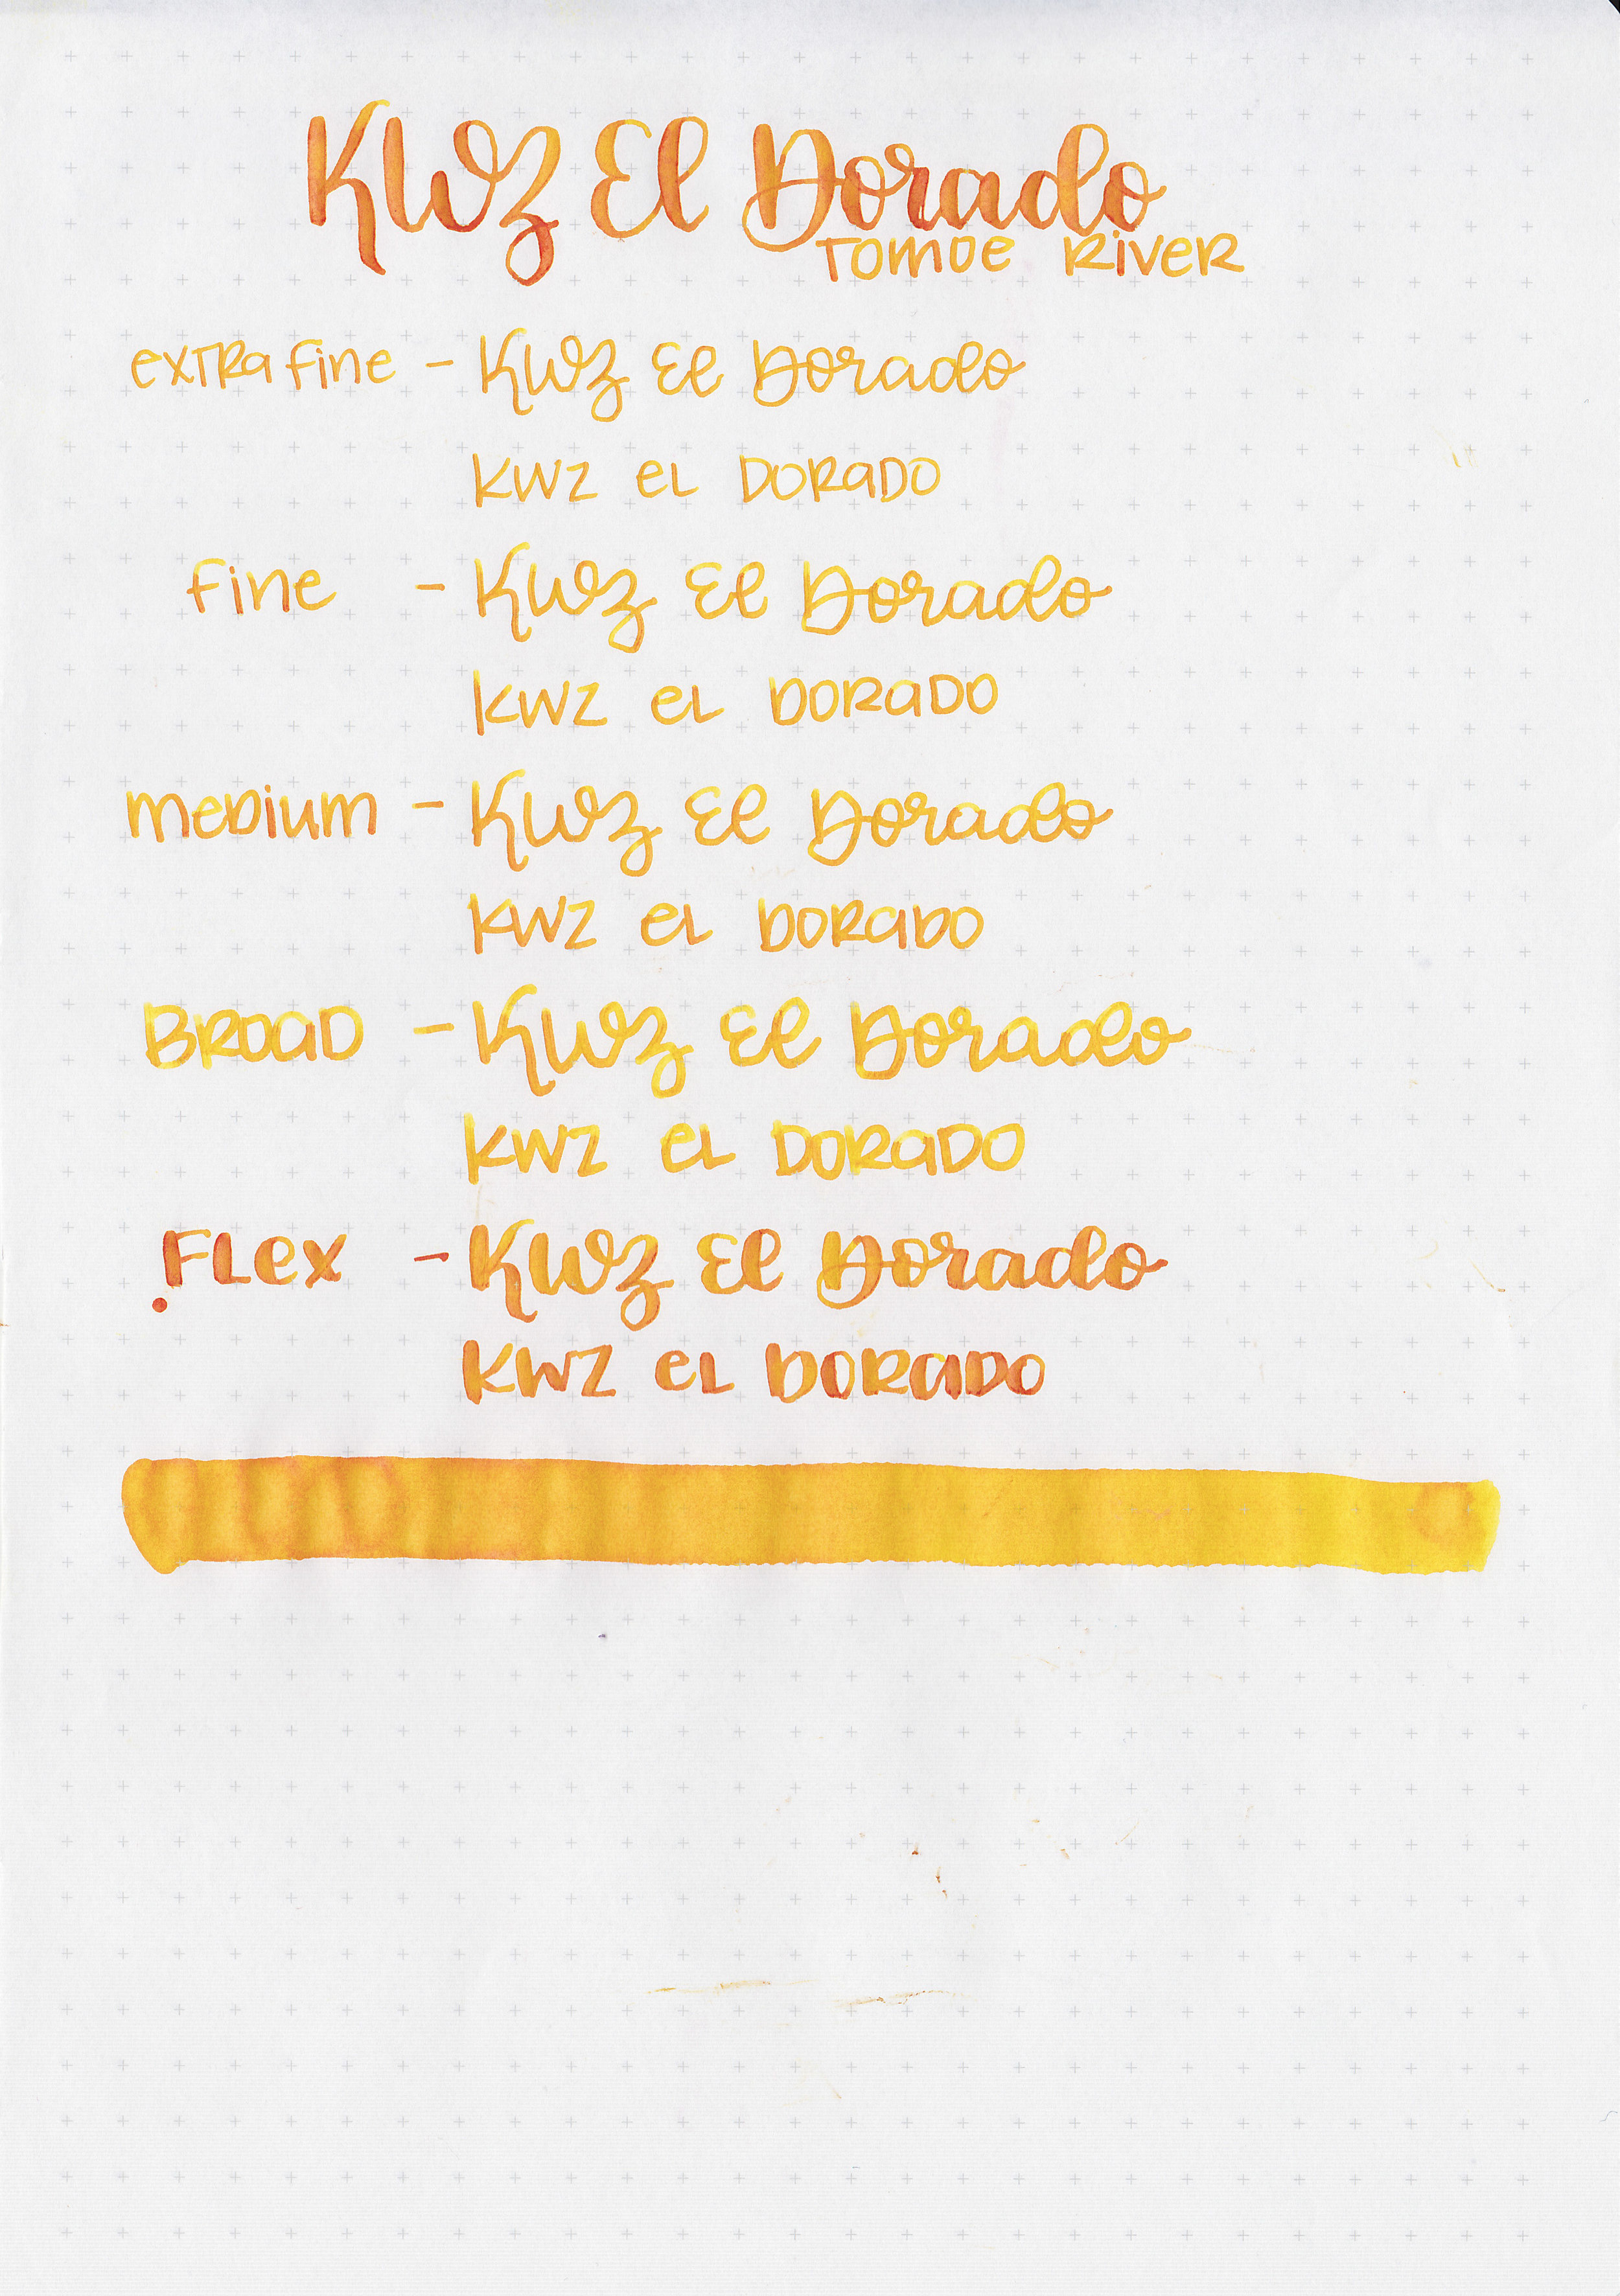 KWZ El Dorado
Tomoe River
extra fine - KWZ El Dorado
KWZ el Dorado
fine - KWZ El Dorado
KWZ el Dorado
medium - KWZ El Dorado
KWZ el Dorado
Broad - KWZ El Dorado
KWZ el Dorado
Flex - KWZ El Dorado
KWZ el Dorado